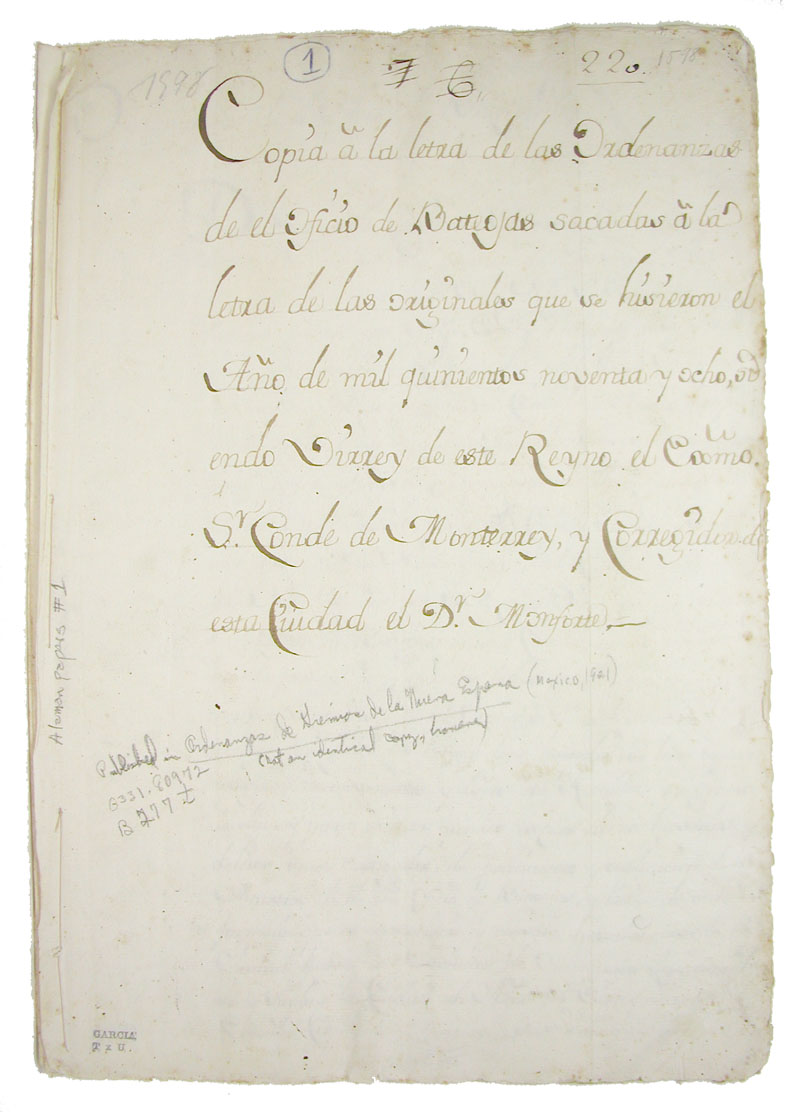 1598
1
7 6.
220.
1598
Copia â la letra de las Ordenanzas
de el Oficio de Batiojas sacadas â la
letra de las originales que se hisieron el
Año de mil quinientos noventa y ocho, si
endo Virrey de este Reyno el Exmo.
Sr. Conde de Monterrey, y Corregidor de
esta Ciudad el Dr. Monforte.
Published in Ordenanzas de Gremios de la Nueva España (Mexico, 1921)
(not an identical copy, however)
G331.80972
B 277
Aleman papers #1
GARCIA
T x U.